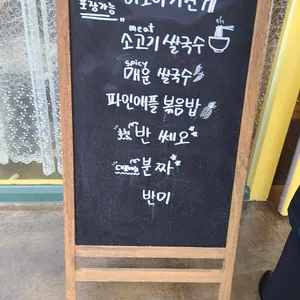 포장가능
meat
소고기 쌀국수
spicy
매운 쌀국수
파인애플 볶음밥
반 쎄오
분 짜
반미